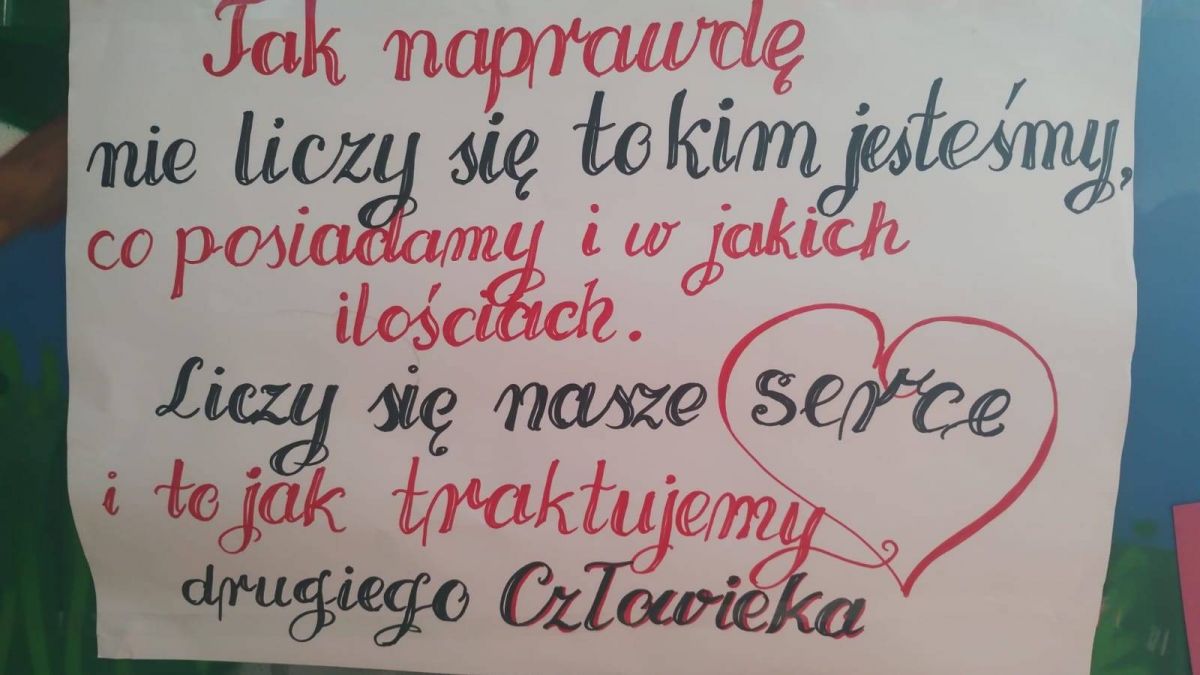 Tak naprawdę
nie liczy się to kim jesteśmy,
co posiadamy i w jakich
ilościach.
Liczy się nasze serce
i to jak traktujemy
drugiego Człowieka